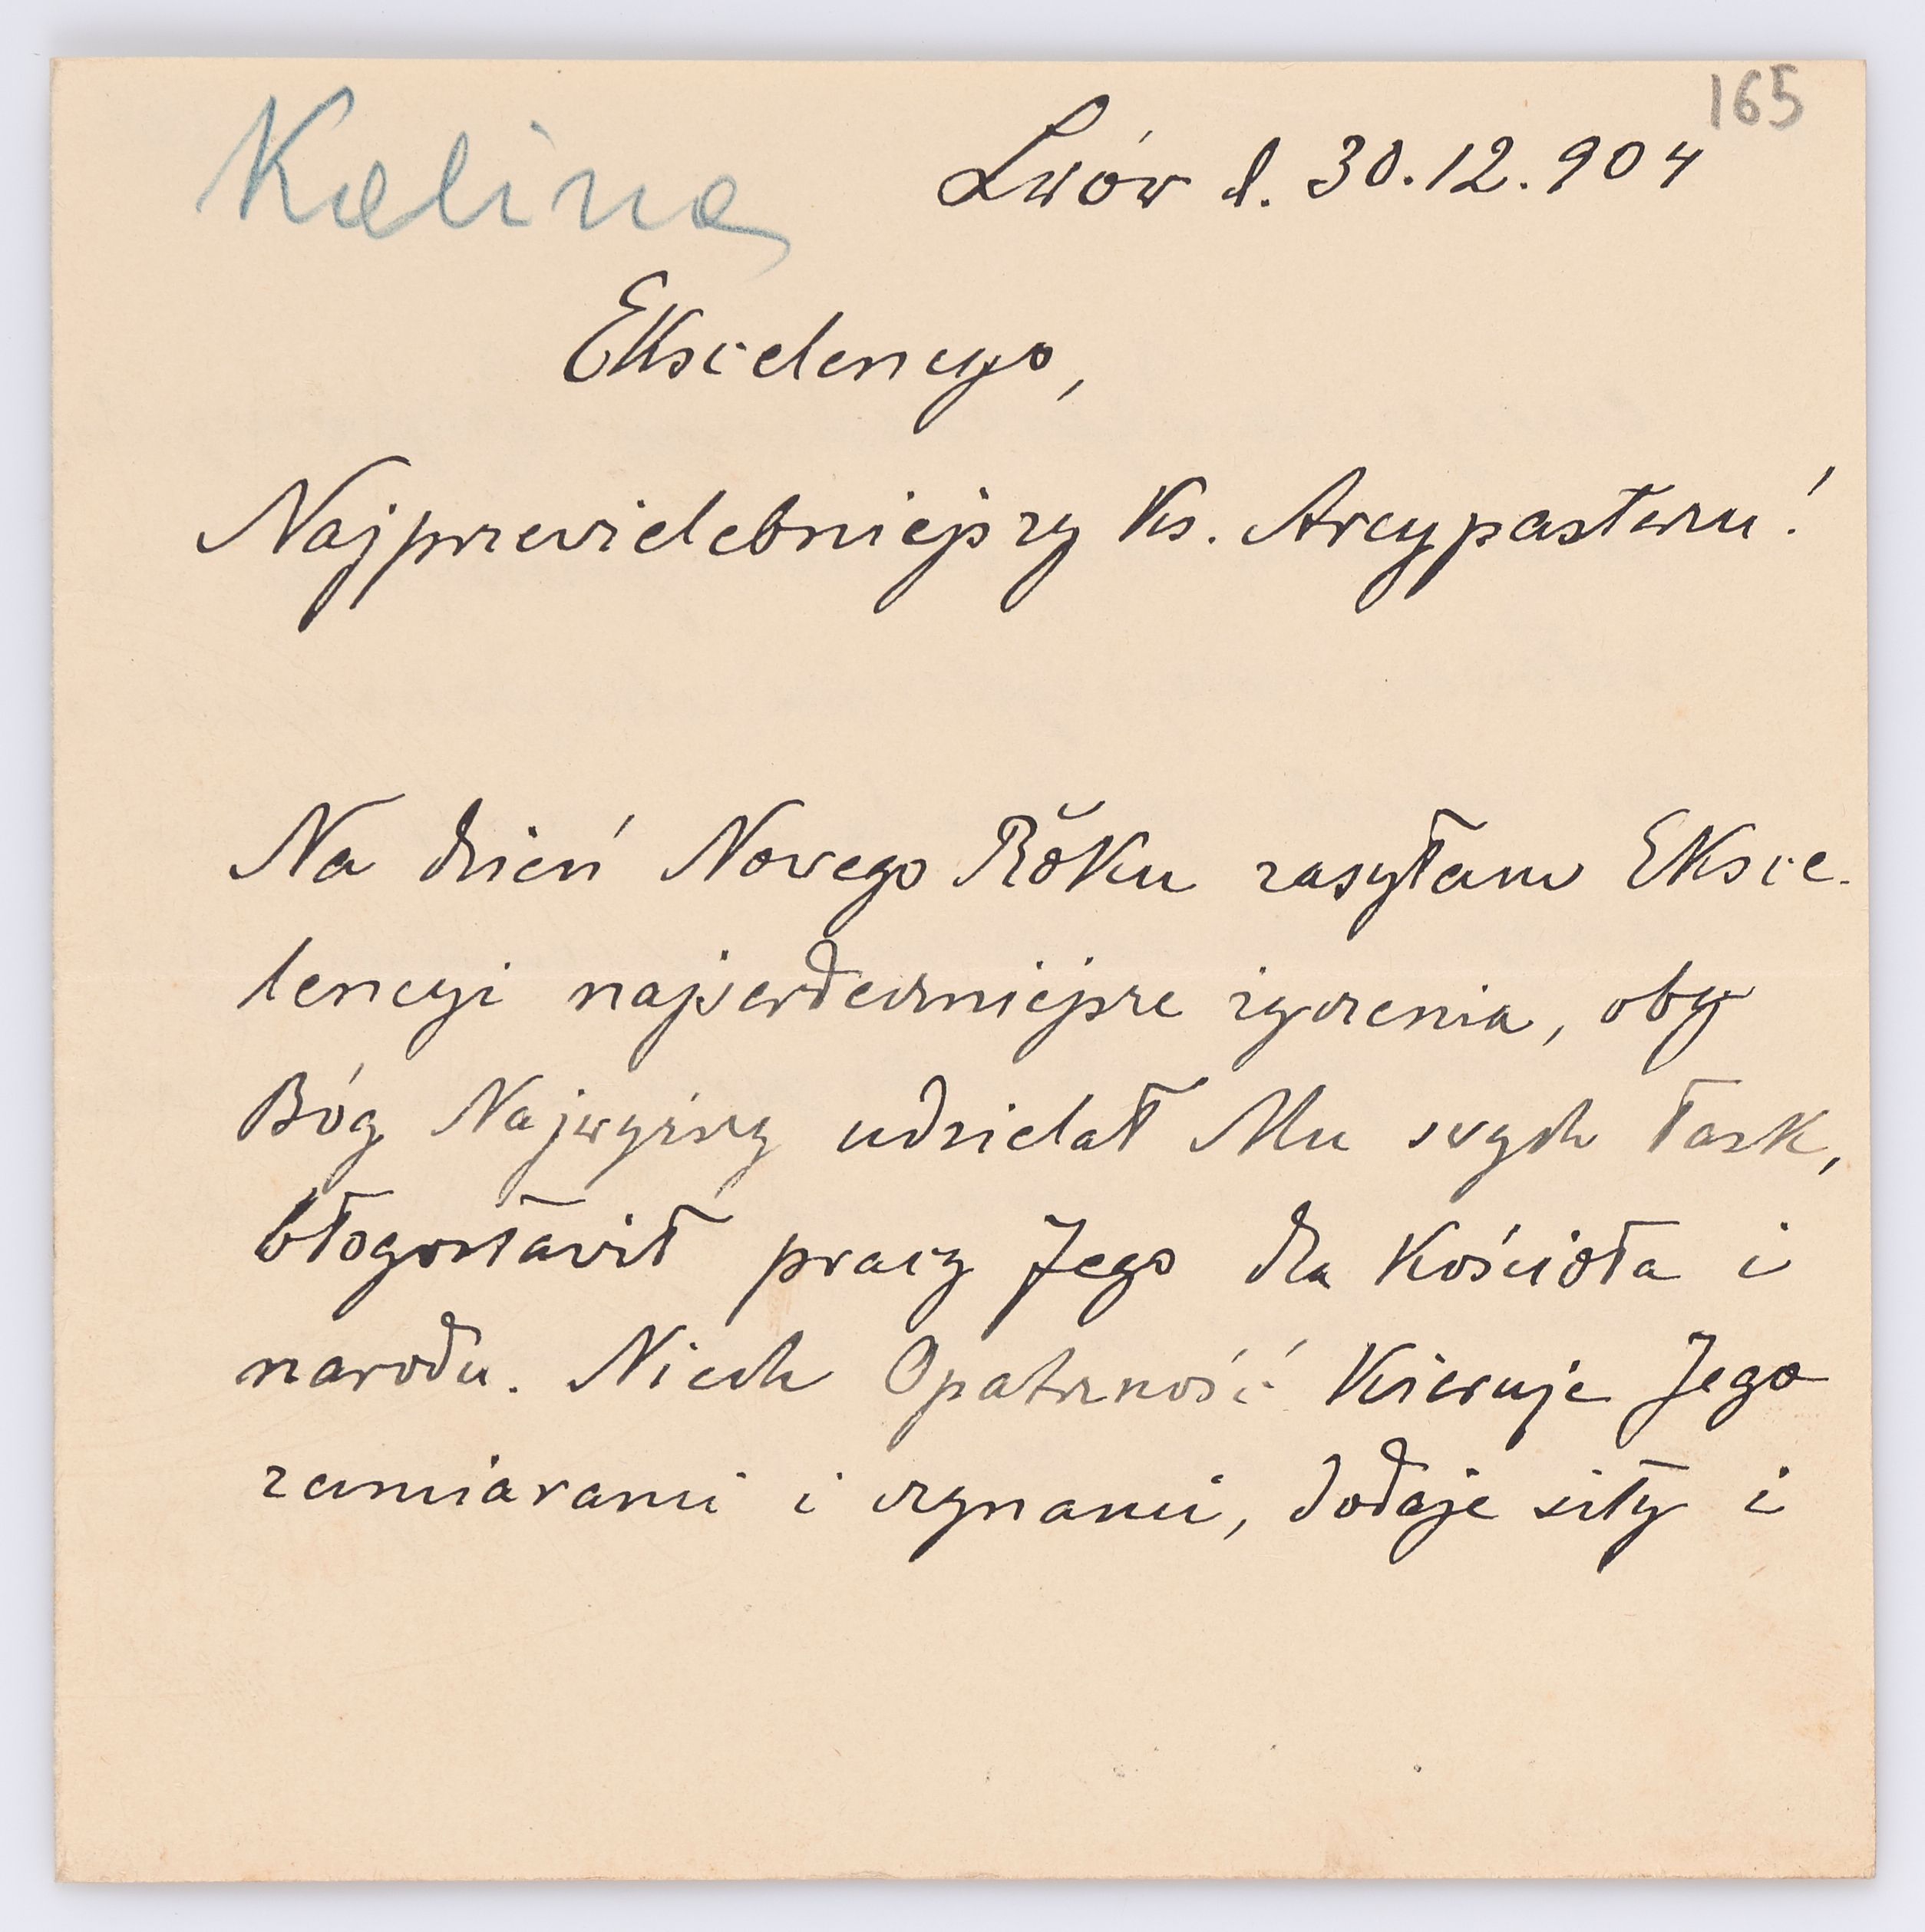 165
Kalina
Lwów d. 30.12.904
Ekscelencyo,
Najprzewielebniejszy Ks. Arcypasterzu!
Na dzień Nowego Roku zasyłam Eksce-
lencyi najserdeczniejsze życzenia, oby
Bóg Najwyższy udzielał Mu swych łask,
błogosławił pracy Jego dla Kościoła i
narodu. Niech Opatrzność kieruje Jego
zamiarami i czynami, dodaje siły i